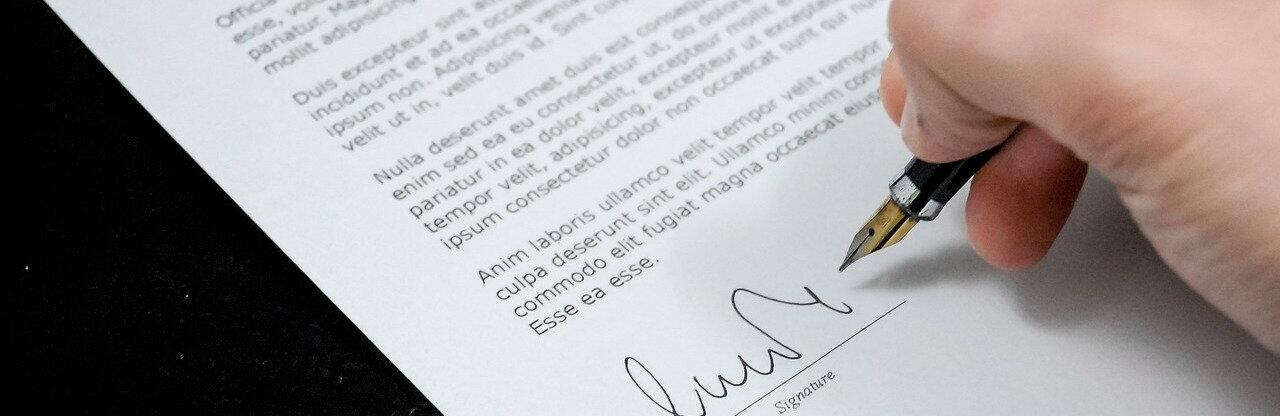 Officia
esse, volu
pariatur. Mag
mollit adipisicing
Duis excepteur sint ad
incididunt et ad ea occaec
ipsum non. Adipisicing venia
velit ut in, velit duis id. Sint cu
Nulla deserunt amet duis est consequ
enim sed ea eu consectetur ut, do dolore
pariatur in ea dolor velit, excepteur mollit
tempor velit, adipisicing, excepteur ut excepteur
ipsum consectetur dolor non occaecat sunt qui nu
Anim laboris ullamco velit tempor velit tempor
culpa deserunt sint elit. Ullamco minim con
commodo elit fugiat magna occaecat eius
Esse ea esse.
Signature